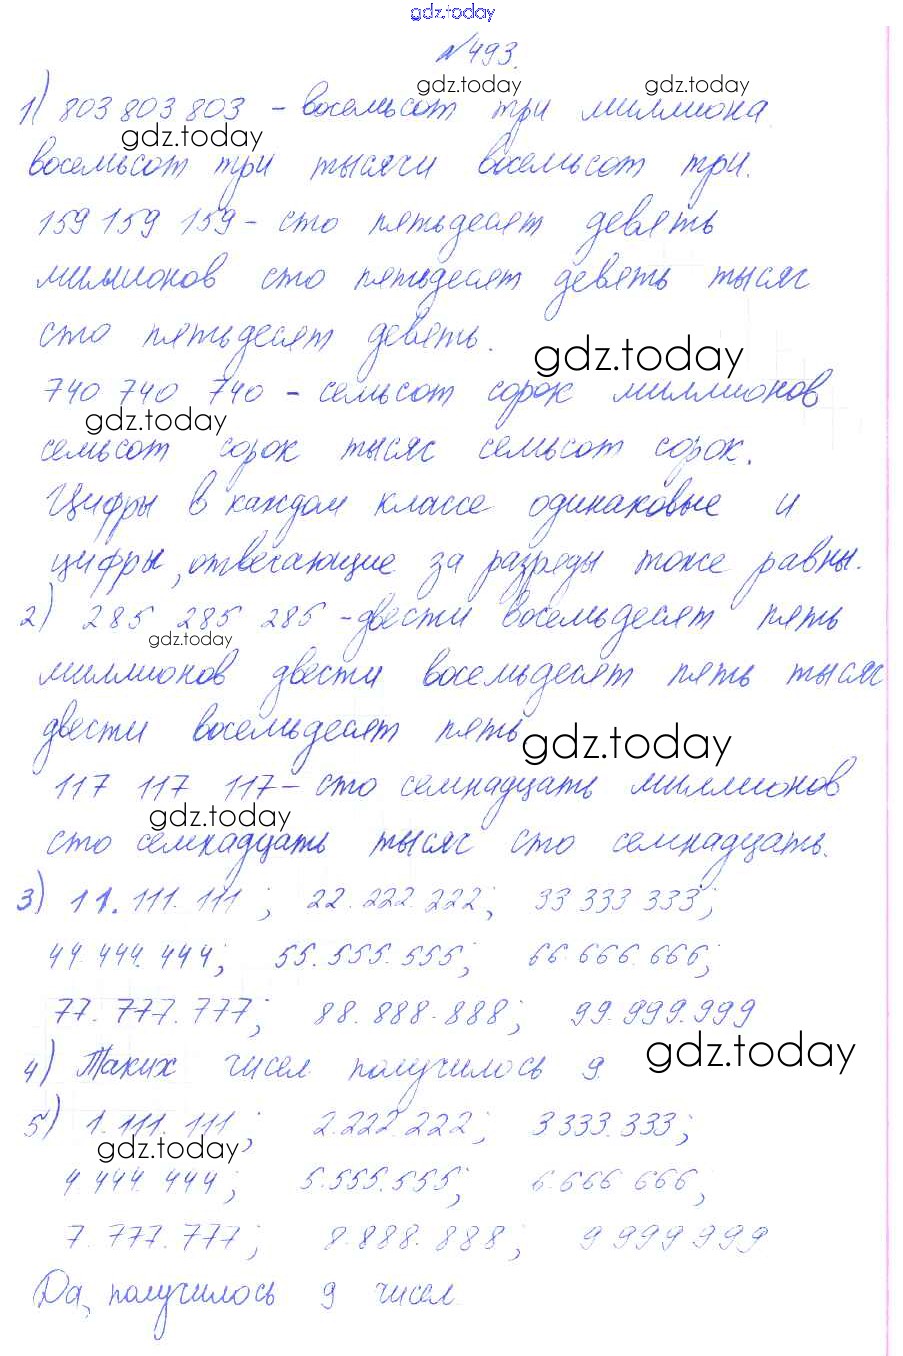 gdz.today
№493.
gdz.today gdz.today
1) 803 803 803 - восемьсот три миллиона
gdz.today
восемьсот три тысячи восемьсот три.
159 159 159 - сто пятьдесят девять
миллионов сто пятьдесят девять тысяч
сто пятьдесят девять.
gdz.today
740 740 740 - семьсот сорок миллионов
gdz.today
семьсот сорок тысяч семьсот сорок.
Цифры в каждом классе одинаковые и
цифры, отвечающие за разряды тоже равны.
2) 285 285 285 - двести восемьдесят пять
gdz.today
миллионов двести восемьдесят пять тысяч
двести восемьдесят пять
gdz.today
117 117 117 - сто семнадцать миллионов
gdz.today
сто семнадцать тысяч сто семнадцать.
3) 11.111.111; 22.222.222; 33 333 333;
44.444.444; 55.555.555; 66.666.666;
77.777.777; 88.888.888; 99.999.999
gdz.today
4) Таких чисел получилось 9
5) 1.111.111; 2.222.222; 3 333.333;
gdz.today
4 444.444; 5.555.555; 6.666 666;
7.777.777; 8.888.888; 9 999 999
Да, получилось 9 чисел